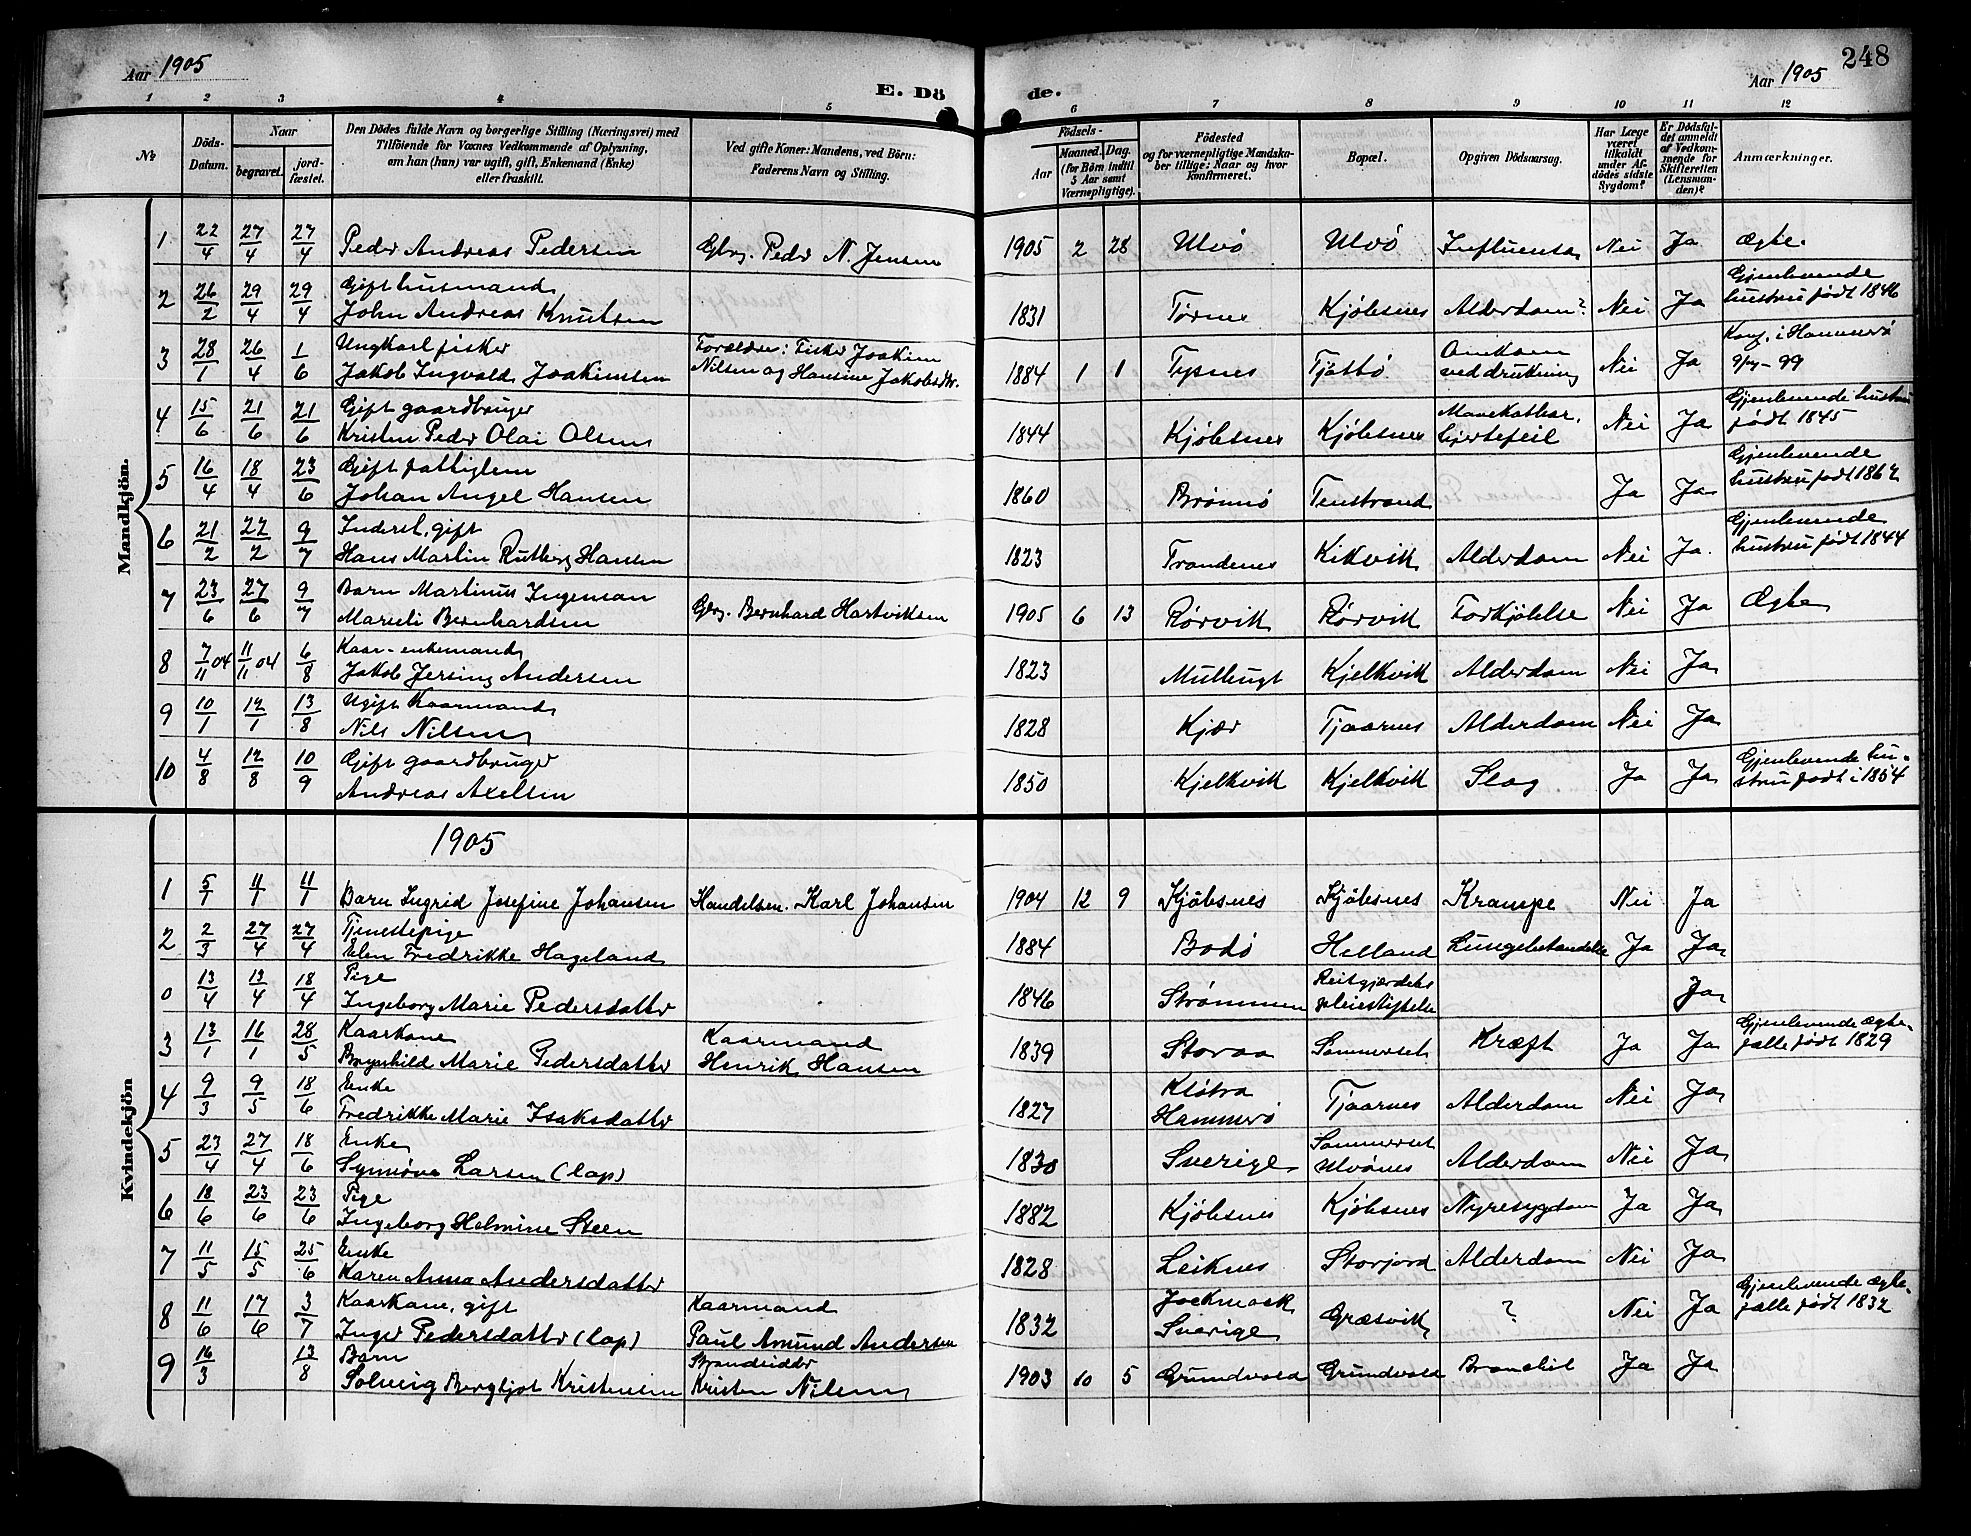 248
Aar 1905
E. Dö
de.
Aar 1905
1 2 3 4 5 6 7 8 9 10 11 12
No
Döds-Datum.
Naar
begravet.
jord-fæstet.
Den Dödes fulde Navn og borgerlige Stilling (Næringsvei) med
Tilföiende for Voxnes Vedkommende af Oplysning,
om han (hun) var ugift, gift, Enkemand (Enke)
eller fraskilt.
Ved gifte Koner: Mandens, ved Börn:
Faderens Navn og Stilling.
Födsels-
Aar
Maaned. Dag.
(for Börn indtil
5 Aar samt
Værnepligtige).
Födested
og for værnepligtige Mandska-
ber tillige: Naar og hvor
Konfirmeret.
Bopæl.
Opgiven Dödsaarsag.
Har Læge
været
tilkaldt
under Af-
dödes sidste
Sygdom?
Er Dödsfal-
det anmeldt
af Vedkom-
mende for
Skifteretten
(Lensman-
den)?
Anmærkninger.
Mandkjön.
1 22/4 27/4 27/4 Peder Andreas Pedersen Gbrg. Peder N. Jensen 1905 2 28 Ulvö Ulvö Influensa Nei Ja Ægte.
2 26/2 29/4 29/4 Gift husmand
John Andreas Knutsen 1831 Tørnes Kjöbsnes Alderdom? Nei Ja Gjenlevende
hustru födt 1846
3 28/1 26/4 1/6 Ungkarl fisker
Jakob Ingvald Joakimsen Forældre: Fisker Joakim
Nilsen og Hansine Jakobsdtr. 1884 1 1 Tysnes Tjöttö Omkom
ved drukning Nei Ja Konf. i Hammerö
9/7-99
4 15/6 21/6 21/6 Gift gaardbruger
Kristen Peder Olai Olsen 1844 Kjöbsnes Kjöbsnes Mavekathar,
hjertefeil Nei Ja Gjenlevende hustru
födt 1845
5 16/4 18/4 23/6 Gift fattiglem
Johan Angel Hansen 1860 Brönnö Tenstrand Ja Ja Gjenlevende
hustru födt 1862
6 21/2 22/2 9/7 Inderst, gift
Hans Martin Rutberg Hansen 1823 Trondenes Kikvik Alderdom Nei Ja. Gjenlevende
hustru födt 1844
7 23/6 27/6 9/7 Barn Martinus Ingeman
Marieli Bernhardsen Gbrg. Bernhard Hartviksen 1905 6 13 Rörvik Rörvik Forkjölelse Nei Ja Ægte
8 7/11 04 11/11 04 6/8 Kaar-enkemand
Jakob Jersing Andersen 1823 Kjelkvik Alderdom Nei Ja
9 10/1 12/1 13/8 Ugift Kaarmand
Nils Nilsen 1828 Kjær Tjaarnes Alderdom Nei Ja
10 4/8 12/8 10/9 Gift gaardbruger
Andreas Axelsen 1850 Kjelkvik Kjelkvik Slag Ja Ja Gjenlevende hu-
stru födt i 1854
Kvindekjön
1905
1 5/1 11/1 11/1 Barn Ingrid Josefine Johansen Handelsm. Karl Johansen 1904 12 9 Kjöbsnes Kjöbsnes Krampe Nei Ja
2 2/3 27/4 27/4 Tjenestepige
Elen Fredrikke Hageland 1884 Bodö Helland Lungebetændelse Ja Ja
0 13/4 13/4 18/4 Pige
Ingeborg Marie Pedersdatter 1846 Strömmen Reitgjerdets
pleiestiftelse Ja
3 13/1 16/1 28/5 Kaarkone
Brynhild Marie Pedersdatter Kaarmand
Henrik Hansen 1839 Storaa Sommerset Kræft Ja Ja Gjenlevende ægte-
fælle födt 1829
4 9/3 9/5 18/6 Enke
Fredrikke Marie Isaksdatter 1827 Klötra
Hammerö Tjaarnes Alderdom Nei Ja
5 23/4 27/4 18/6 Enke
Synnöve Larsen (lap) 1830 Sverige Sommerset
Ulvönes Alderdom Nei Ja
6 18/6 23/6 23/6 Pige
Ingeborg Helmine Steen 1882 Kjöbsnes Kjöbsnes Nyresygdom Ja Ja
7 11/5 15/5 25/6 Enke
Karen Anna Andersdatter 1828 Leiknes Storjord Alderdom Nei Ja
8 11/6 17/6 3/7 Kaarkone, gift
Inger Pedersdatter (lap) Kaarmand
Paul Amund Andersen 1832 Jockmock
Sverige Græsvik ? Nei Ja Gjenlevende ægte-
fælle födt 1832
9 16/3 13/8 Barn
Solveig Bergljot Kristensen Strandsidder
Kristen Nilsen 1903 10 5 Grundvold Grundvold Bronchit Ja Ja